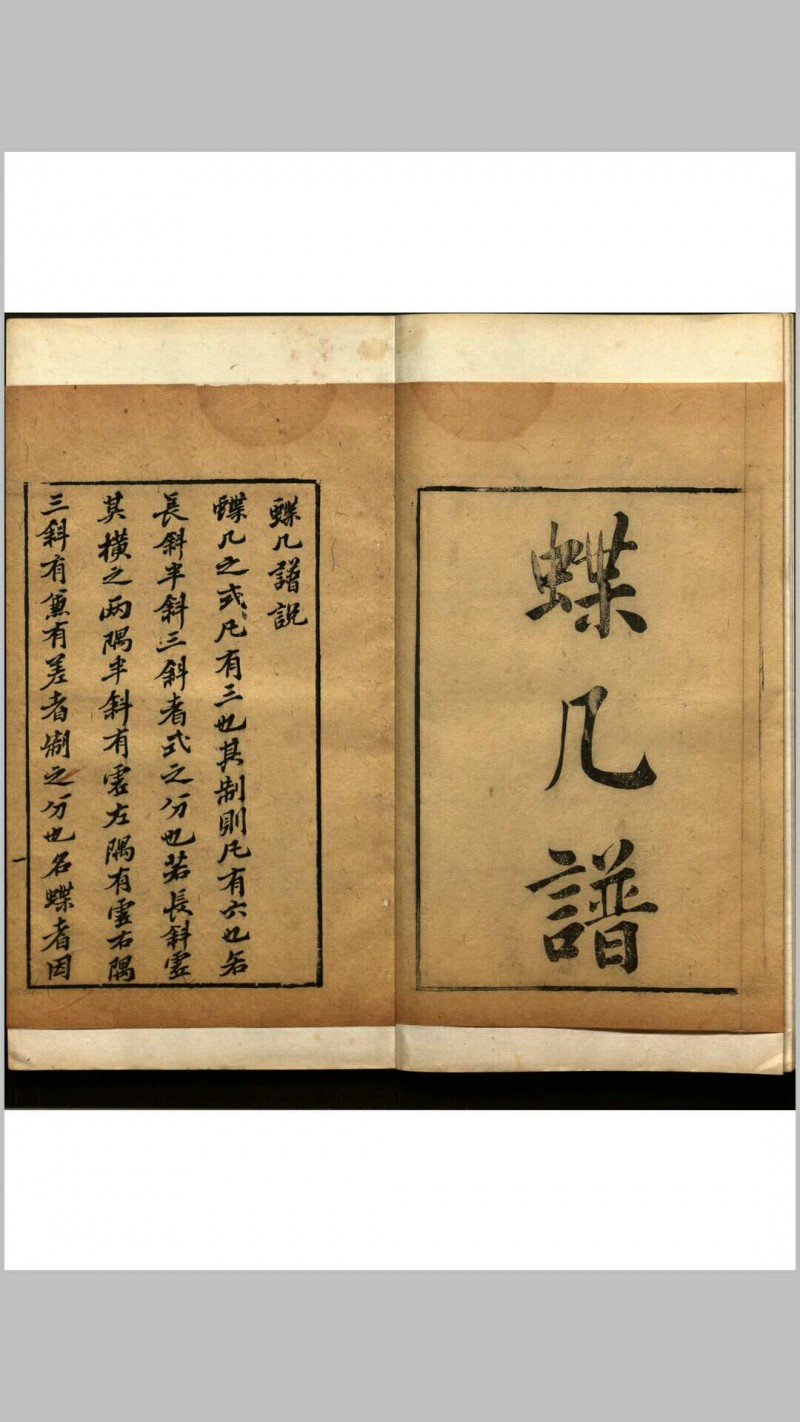 蝶几譜
蝶几譜説
蝶几之式凡有三也其制則凡有六也若
長斜半斜三斜者式之分也若長斜虚
其橫之两隅半斜有虚左隅有虚右隅
三斜有兼有差者制之分也名蝶者因